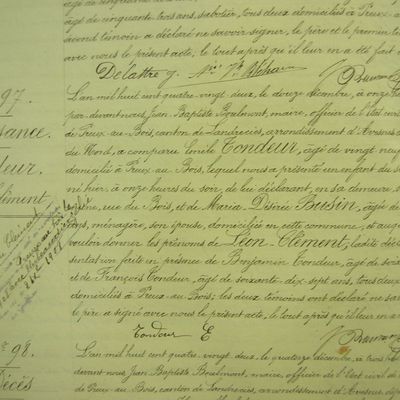 âgé de cinquante trois ans, sabotier, tous deux domiciliés à Preux au
second témoin a déclaré ne savoir signer, le père et le premier tém
avec nous le présent acte, le tout après qu'il leur en a été fait
Delattre g.
97.
L'an mil huit cent quatre vingt deux, le douze décembre, à onze
par devant nous, Jean Baptiste Boulmont, maire, officier de l'état civil
de Preux-au-Bois, canton de Landrecies, arrondissement d'Avesnes
du Nord, a comparu Emile Condeur, âgé de vingt neuf
domicilié à Preux au Bois; lequel nous a présenté un enfant du se
né hier, à onze heures du soir, de lui déclarant, en sa demeure, s
rue du Bois, et de Maria-Désirée Busin, âgée de
ménagère, son épouse, domiciliée en cette commune, et auq
vouloir donner les prénoms de Léon-Clément, ladite décl
sentation faite en présence de Benjamin Condeur, âgé de soix
et de François Condeur, âgé de soixante-dix-sept ans, tous deux
domiciliés à Preux au Bois; les deux témoins ont déclaré ne sa
le père a signé avec nous le présent acte, le tout après qu'il leur en
Condeur E
98.
Décès
L'an mil huit cent quatre vingt deux, le quatorze décembre, à trois h
devant nous Jean Baptiste Boulmont, maire, officier de l'état civil de
de Preux-au-Bois, canton de Landrecies, arrondissement d'Avesnes, dép